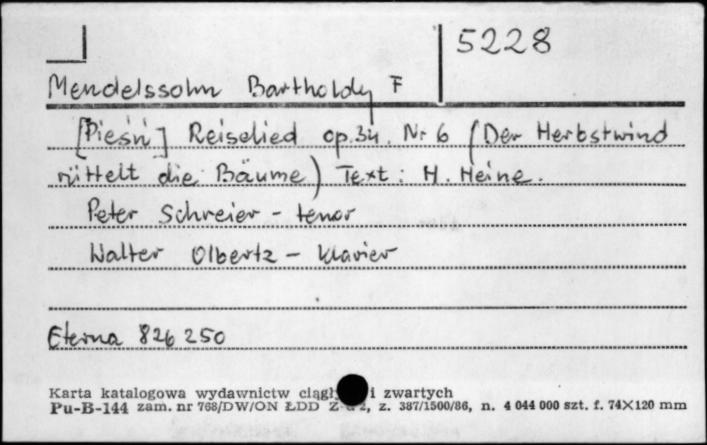 5228
Mendelssohn Bartholdy F
[Pieśń] Reiselied op. 34. Nr 6 (Der Herbstwind
rüttelt die Bäume) Text: H. Heine.
Peter Schreier - tenor
Walter Olbertz - klavier
Eterna 826 250
Karta katalogowa wydawnictw ciągł i zwartych
Pu-B-144 zam. nr 768/DW/ON ŁDD z. 387/1500/86, n. 4 044 000 szt. f. 74×120 mm